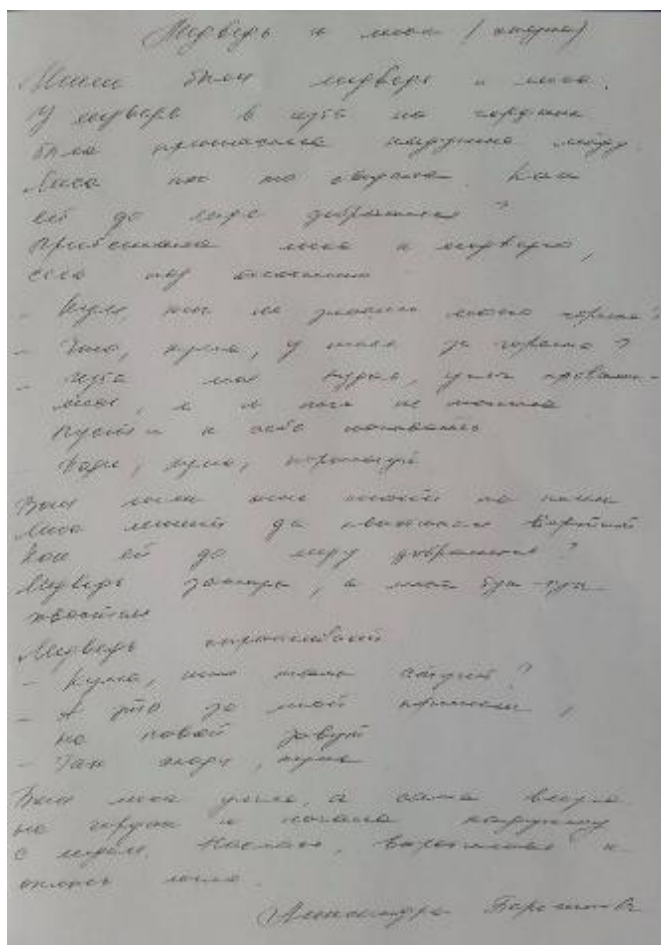 Медведь и лиса (сказка)
Жили были медведь и лиса.
У медведя в избе на чердаке
была припасена кадушка мёду.
Лиса про то сведала. Как
ей до мёда добраться?
Прибежала лиса к медведю,
села под окошечко
- Кума, ты не знаешь моего горюшка?
- Что, кума, у тебя за горюшко?
- Изба моя худая, углы провали-
лись, я и печь не топила
Пусти к себе ночевать
- Поди, кума, переночуй
Вот легли они спать на печи
Лиса лежит да хвостиком вертит
Как ей до мёду добраться?
Медведь заснул, а лиса тук-тук
хвостом
Медведь спрашивает
- Кума, кто там стучит?
- А это за мной пришли,
на повой зовут
- Так поди, кума
Вот лиса ушла, а сама влезла
на чердак и почала кадушку
с мёдом. Наелась, воротилась и
опять легла.
Александра